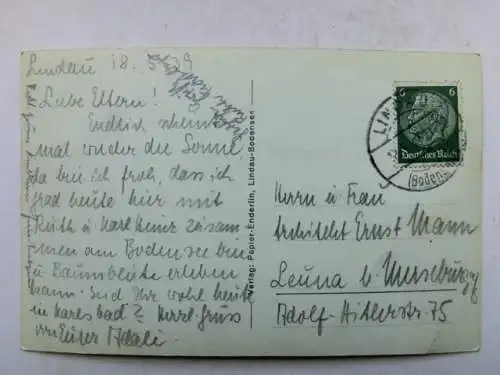 Lindau 18. 5. 39
Liebe Eltern!
Endlich scheint
mal wieder die Sonne
da bin ich froh, dass ich
grad heute hier mit
Ruth u Karl Heinz zusam
men am Bodensee bin
u Baumblüte erleben
kann. Seid Ihr wohl heute
in Karlsbad? Herzl. Gruss
von Eurer Adali
Verlag: Papier-Enderlin, Lindau-Bodensee
6 6
Deutsches Reich
LINDAU
(Bodensee)
Herrn u Frau
Architekt Ernst Mann
Leuna b. Merseburg
Adolf-Hitlerstr. 75